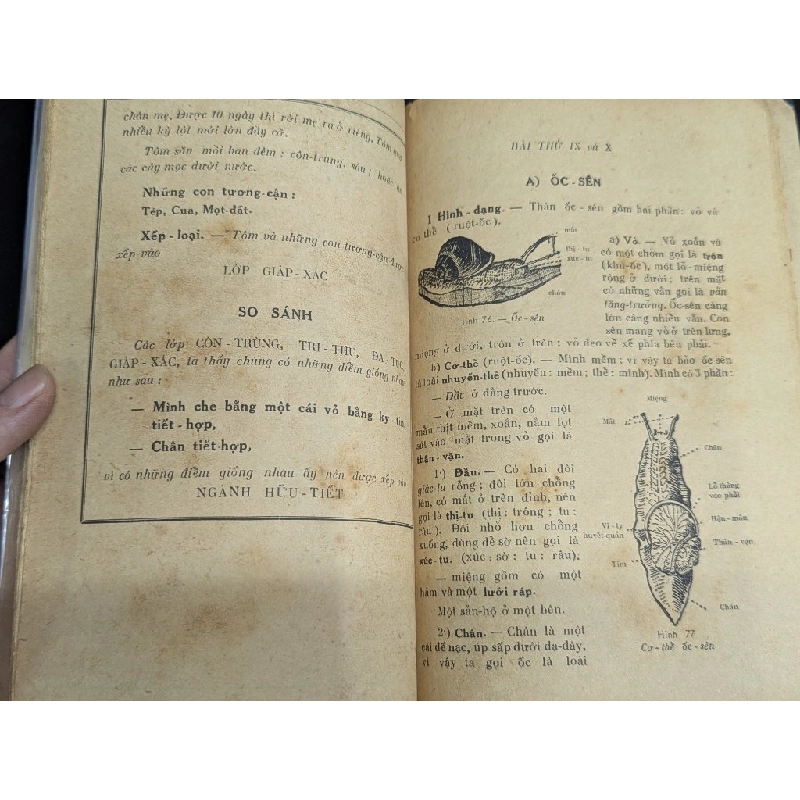 chân mẹ. Được 10 ngày thì rời mẹ ra ở riêng. Tôm
nhiều kỳ lột mới lớn đầy cỡ.
Tôm săn mồi ban đêm : côn-trùng, sâu ; hoặc ăn
các cây mọc dưới nước.
Những con tương-cận :
Tép, Cua, Mọt-đất.
Xếp-loại. — Tôm và những con tương-cận được
xếp vào
LỚP GIÁP-XÁC
SO SÁNH
Các lớp CÔN-TRÙNG, TRI-THÙ, ĐA-TÚC,
GIÁP-XÁC, ta thấy chúng có những điểm giống nhau
như sau :
— Mình che bằng một cái vỏ bằng ky tin
tiết-hợp,
— Chân tiết-hợp,
vì có những điểm giống nhau ấy nên được xếp vào
NGÀNH HỮU-TIẾT
BÀI THỨ IX và X
A) ỐC-SÊN
1 Hình-dạng. — Thân ốc-sên gồm hai phần : vỏ và
cơ thể (ruột-ốc).
mắt
Thị-tu
xúc-tu
chân
Hình 76. — Ốc-sên
a) Vỏ. — Vỏ xoắn và
có một chỏm gọi là trôn
(khu-ốc), một lỗ-miệng
rộng ở dưới ; trên mặt
có những vằn gọi là vằn
tăng-trưởng. Ốc-sên càng
lớn càng nhiều vằn. Con
sên mang vỏ ở trên lưng,
miệng ở dưới, trôn ở trên : vỏ đeo về phía bên phải.
b) Cơ-thể (ruột-ốc). — Mình mềm ; vì vậy ta bảo ốc sên
là loài nhuyễn-thể (nhuyễn : mềm ; thể : mình). Mình có 3 phần :
— Đầu ở đằng trước.
— Ở mặt trên có một
mẩu thịt mềm, xoắn, nằm lọt
sát vào mặt trong vỏ gọi là
thân-vặn.
1·) Đầu. — Có hai đôi
giác-tu rỗng ; đôi lớn chổng
lên, có mắt ở trên đỉnh, nên
gọi là thị-tu (thị : trông ; tu :
râu). Đôi nhỏ hơn chổng
xuống, dùng để sờ nên gọi là
xúc-tu. (xúc : sờ ; tu : râu).
— miệng gồm có một
hàm và một lưỡi ráp.
Một sần-hộ ở một bên.
2·) Chân. — Chân là một
cái đế nạc, úp sấp dưới dạ-dày,
vì vậy ta gọi ốc là loài
Miệng
Mắt
Chân
Lỗ thông
vào phổi
Hậu-môn
Thân-vặn
Tim
Chân
Hình 77
Cơ-thể ốc-sên